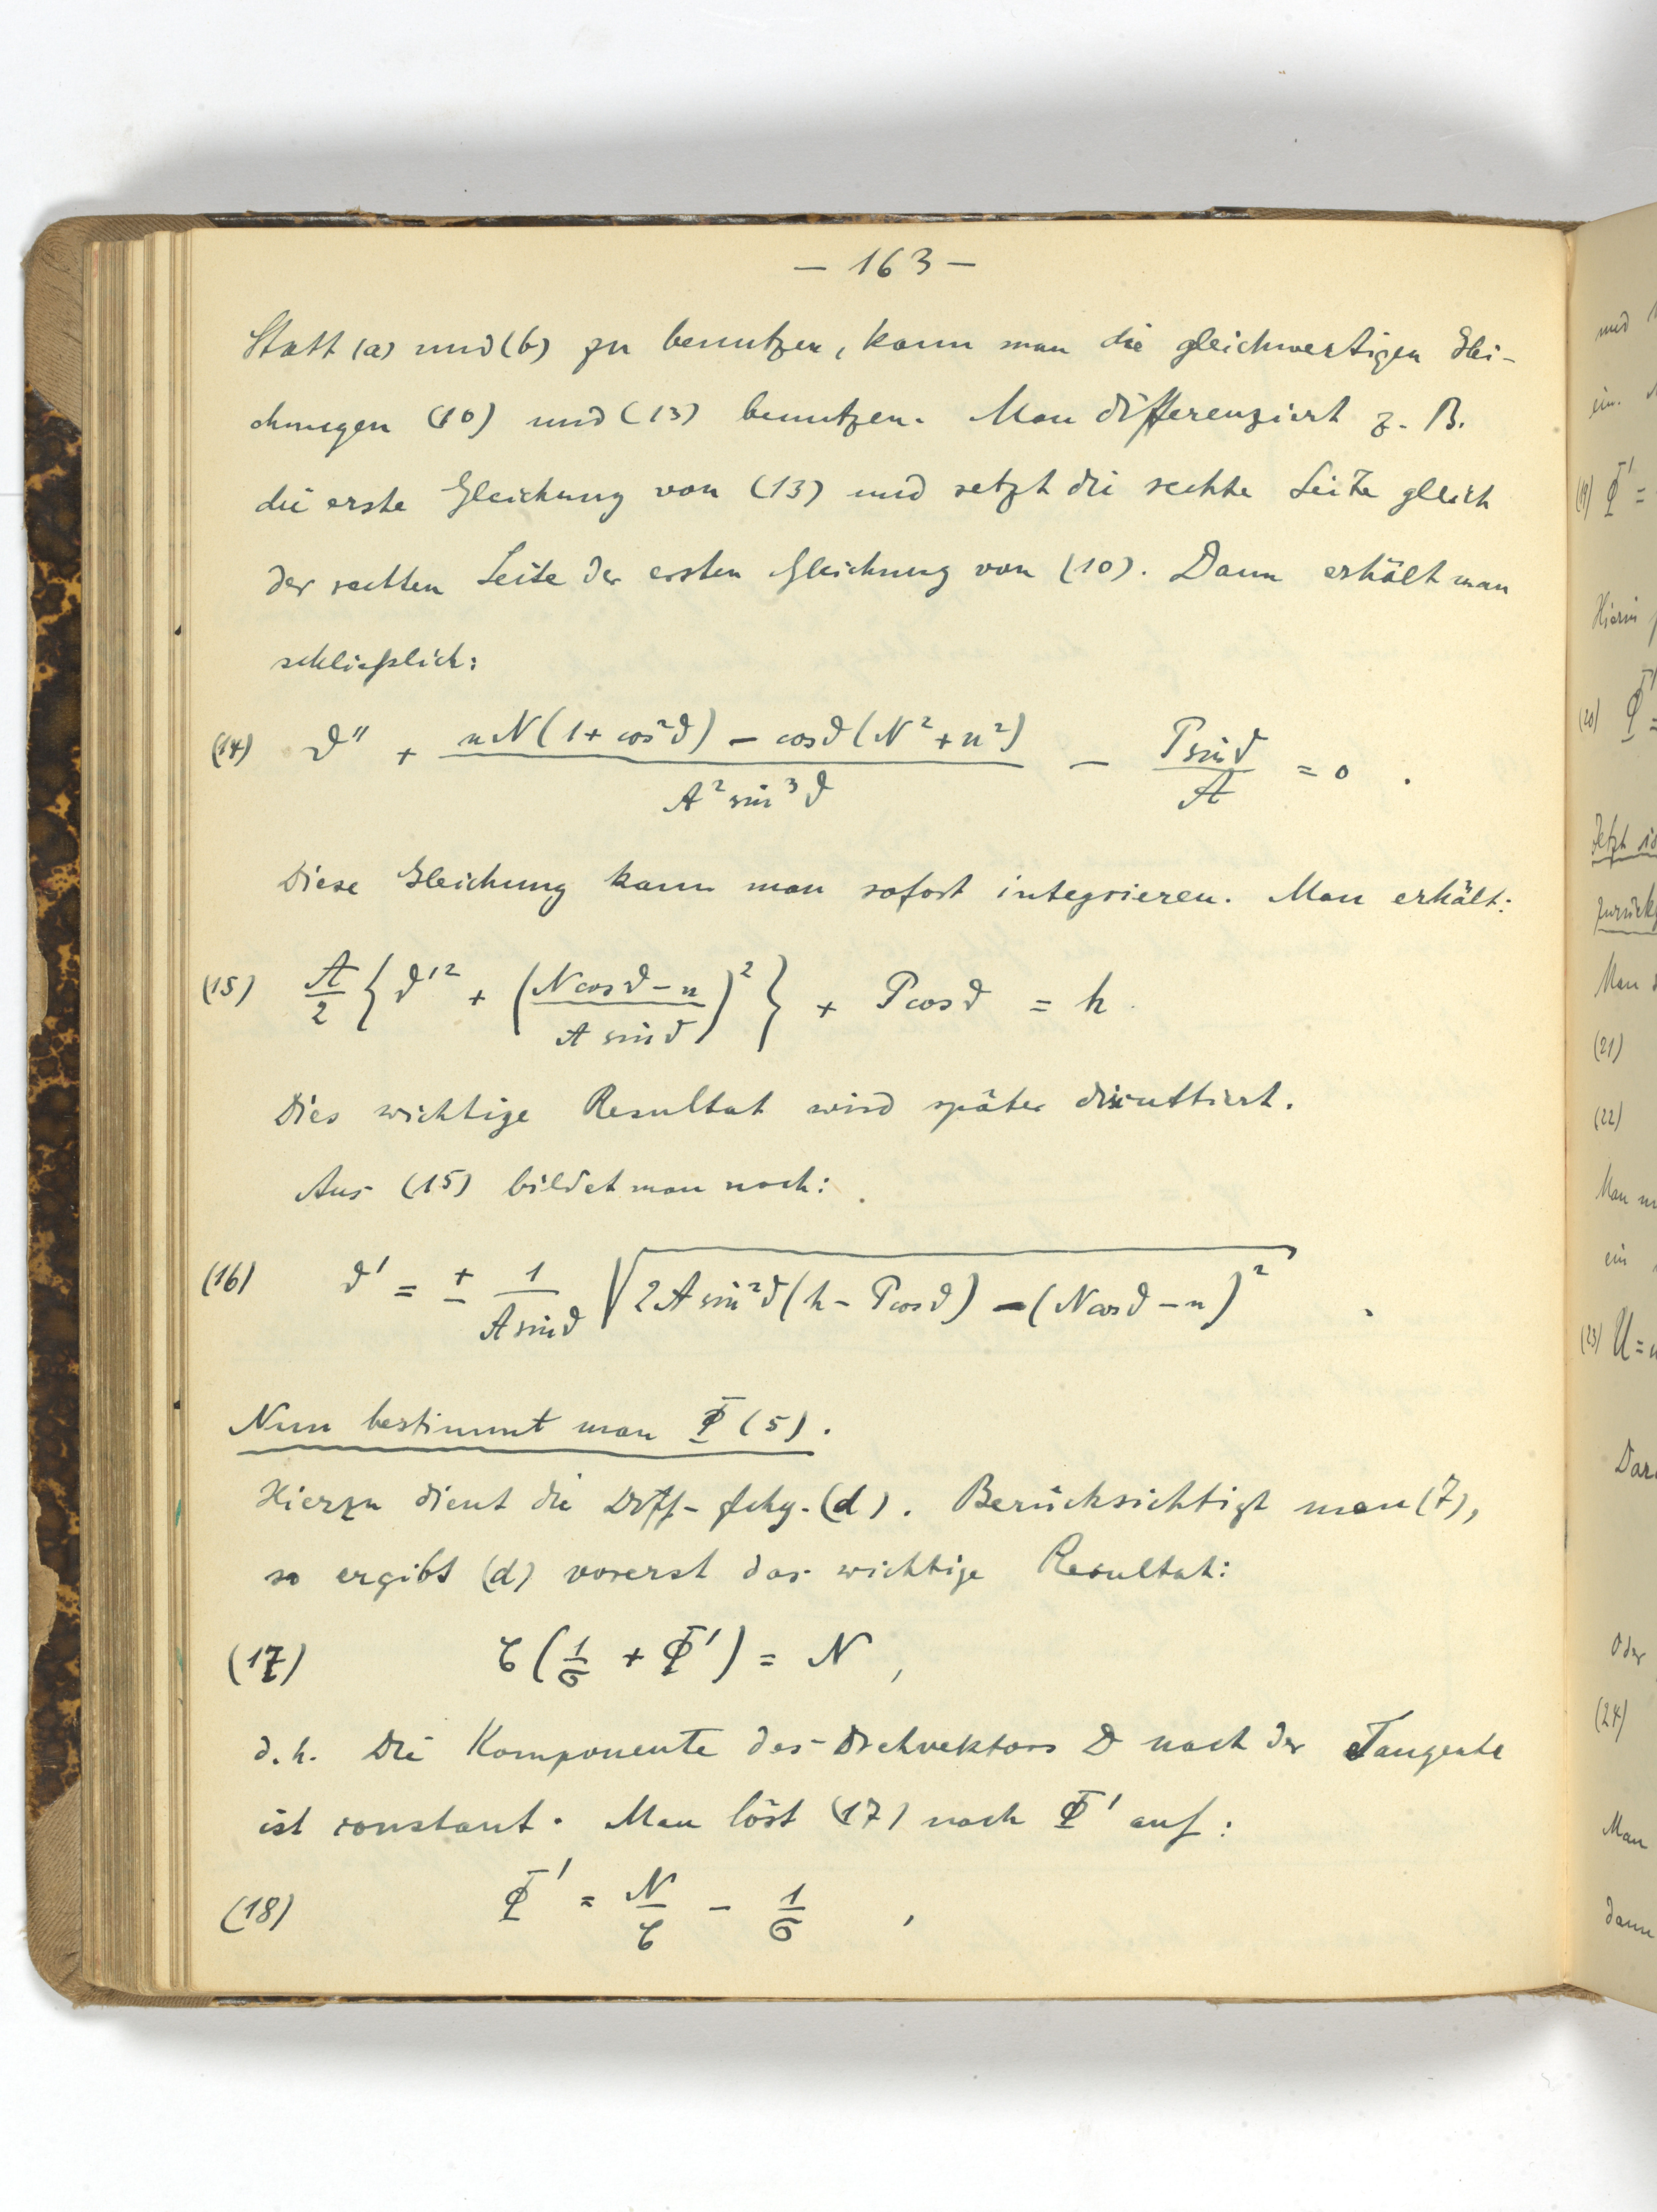 — 163 —
Statt (a) und (b) zu benutzen, kann man die gleichwertigen Glei-
chungen (10) und (13) benutzen. Man differenziert z. B.
die erste Gleichung von (13) und setzt die rechte Seite gleich
der rechten Seite der ersten Gleichung von (10). Dann erhält man
schließlich:
(14) ϑ'' + (nN(1 + cos²ϑ) − cosϑ(N² + n²)) / (A² sin³ϑ) − (P sinϑ) / A = 0 .
Diese Gleichung kann man sofort integrieren. Man erhält:
(15) A/2 { ϑ'² + ((N cosϑ − n) / (A sinϑ))² } + P cosϑ = h .
Dies wichtige Resultat wird später discuttiert.
Aus (15) bildet man noch:
(16) ϑ' = ± 1/(A sinϑ) √(2A sin²ϑ(h − P cosϑ) − (N cosϑ − n)²) .
Nun bestimmt man Φ (5).
Hierzu dient die Diff-glchg. (d). Berücksichtigt man (7),
so ergibt (d) vorerst das wichtige Resultat:
(17) C(1/σ + Φ') = N ,
d.h. Die Komponente des Drehvektors D nach der Tangente
ist constant. Man löst (17) nach Φ' auf:
(18) Φ' = N/C − 1/σ ,
und
ein.
(19) Φ' =
Hierin
(20) Φ' =
Jetzt
zurück
Man
(21)
(22)
Man
ein
(23) U =
Oder
(24)
Man
dann